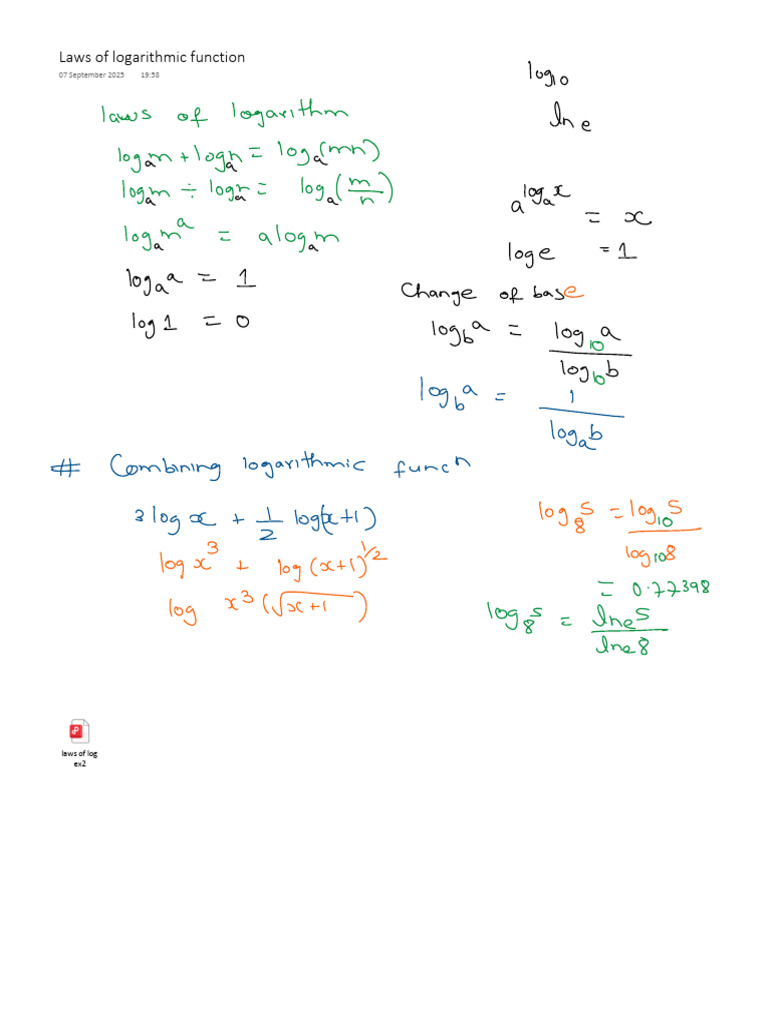 Laws of logarithmic function
07 September 2025 19:58
log₁₀
lnₑ
laws of logarithm
logₐm + logₐn = logₐ(mn)
logₐm ÷ logₐn = logₐ(m/n)
logₐmᵃ = a logₐm
logₐa = 1
log 1 = 0
a^(logₐx) = x
log e = 1
Change of base
log_b a = log₁₀a / log₁₀b
log_b a = 1 / logₐb
# Combining logarithmic funcⁿ
3 log x + 1/2 log(x+1)
log x³ + log (x+1)^(1/2)
log x³(√(x+1))
log₈5 = log₁₀5 / log₁₀8
= 0.77398
log₈5 = lnₑ5 / lnₑ8
laws of log
ex2